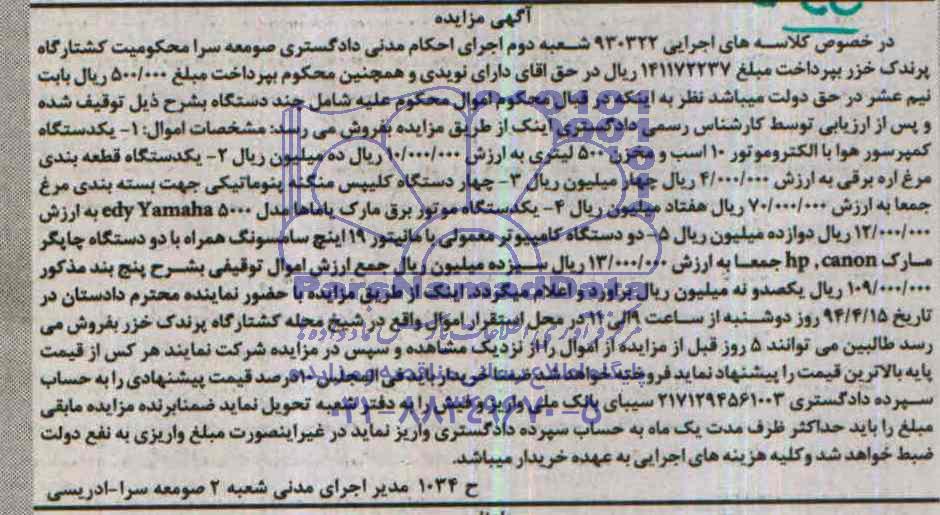 آگهی مزایده
در خصوص کلاسه های اجرایی ۹۳۰۳۲۲ شعبه دوم اجرای احکام مدنی دادگستری صومعه سرا محکومیت کشتارگاه
پرندک خزر بپرداخت مبلغ ۱۴۱۱۷۲۲۳۷ ریال در حق اقای دارای نویدی و همچنین محکوم بپرداخت مبلغ ۵۰۰/۰۰۰ ریال بابت
نیم عشر در حق دولت میباشد نظر به اینکه در قبال محکوم اموال محکوم علیه شامل چند دستگاه بشرح ذیل توقیف شده
و پس از ارزیابی توسط کارشناس رسمی دادگستری اینک از طریق مزایده بفروش می رسد: مشخصات اموال: ۱- یکدستگاه
کمپرسور هوا با الکتروموتور ۱۰ اسب و مخزن ۵۰۰ لیتری به ارزش ۱۰/۰۰۰/۰۰۰ ریال ده میلیون ریال ۲- یکدستگاه قطعه بندی
مرغ اره برقی به ارزش ۴/۰۰۰/۰۰۰ ریال چهار میلیون ریال ۳- چهار دستگاه کلیپس منگنه پنوماتیکی جهت بسته بندی مرغ
جمعا به ارزش ۷۰/۰۰۰/۰۰۰ ریال هفتاد میلیون ریال ۴- یکدستگاه موتور برق مارک یاماها مدل edy Yamaha ۵۰۰۰ به ارزش
۱۲/۰۰۰/۰۰۰ ریال دوازده میلیون ریال ۵- دو دستگاه کامپیوتر معمولی با مانیتور ۱۹ اینچ سامسونگ همراه با دو دستگاه چاپگر
مارک hp , canon جمعا به ارزش ۱۳/۰۰۰/۰۰۰ ریال سیزده میلیون ریال جمع ارزش اموال توقیفی بشرح پنج بند مذکور
۱۰۹/۰۰۰/۰۰۰ ریال یکصدو نه میلیون ریال براورد و اعلام میگردد. اینک از طریق مزایده با حضور نماینده محترم دادستان در
تاریخ ۹۴/۴/۱۵ روز دوشنبه از ساعت ۹ الی ۱۲ در محل استقرار اموال واقع در شیخ محله کشتارگاه پرندک خزر بفروش می
رسد طالبین می توانند ۵ روز قبل از مزایده از اموال را از نزدیک مشاهده و سپس در مزایده شرکت نمایند هر کس از قیمت
پایه بالاترین قیمت را پیشنهاد نماید فروخته خواهد شد ضمنا خریدار باید فی المجلس ۱۰ درصد قیمت پیشنهادی را به حساب
سپرده دادگستری ۲۱۷۱۲۹۴۵۶۱۰۰۳ سیبای بانک ملی واریز و فیش را به دفتر شعبه تحویل نماید ضمنا برنده مزایده مابقی
مبلغ را باید حداکثر ظرف مدت یک ماه به حساب سپرده دادگستری واریز نماید در غیراینصورت مبلغ واریزی به نفع دولت
ضبط خواهد شد و کلیه هزینه های اجرایی به عهده خریدار میباشد.
ح ۱۰۳۴ مدیر اجرای مدنی شعبه ۲ صومعه سرا-ادریسی
ParsNamadData
۰۲۱-۸۸۳۴۹۶۷۰-۵